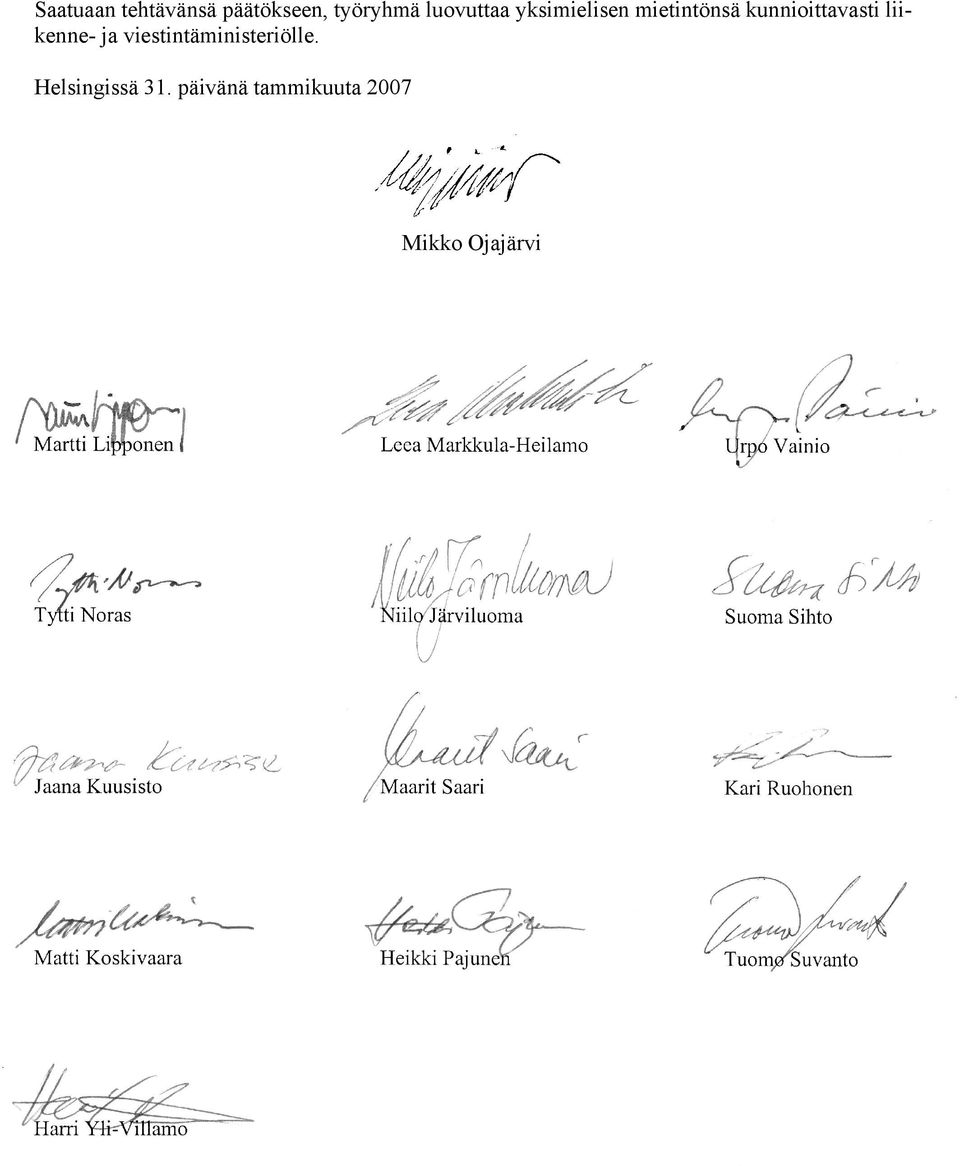 Saatuaan tehtävänsä päätökseen, työryhmä luovuttaa yksimielisen mietintönsä kunnioittavasti lii-
kenne- ja viestintäministeriölle.
Helsingissä 31. päivänä tammikuuta 2007
Mikko Ojajärvi
Martti Lipponen Leea Markkula-Heilamo Urpo Vainio
Tytti Noras Niilo Järviluoma Suoma Sihto
Tytti Noras Niilo Järviluoma Suoma Sihto
Jaana Kuusisto Maarit Saari
Jaana Kuusisto Maarit Saari Kari Ruohonen
Matti Koskivaara Heikki Pajunen Tuomo Suvanto
Harri Yli-Villamo